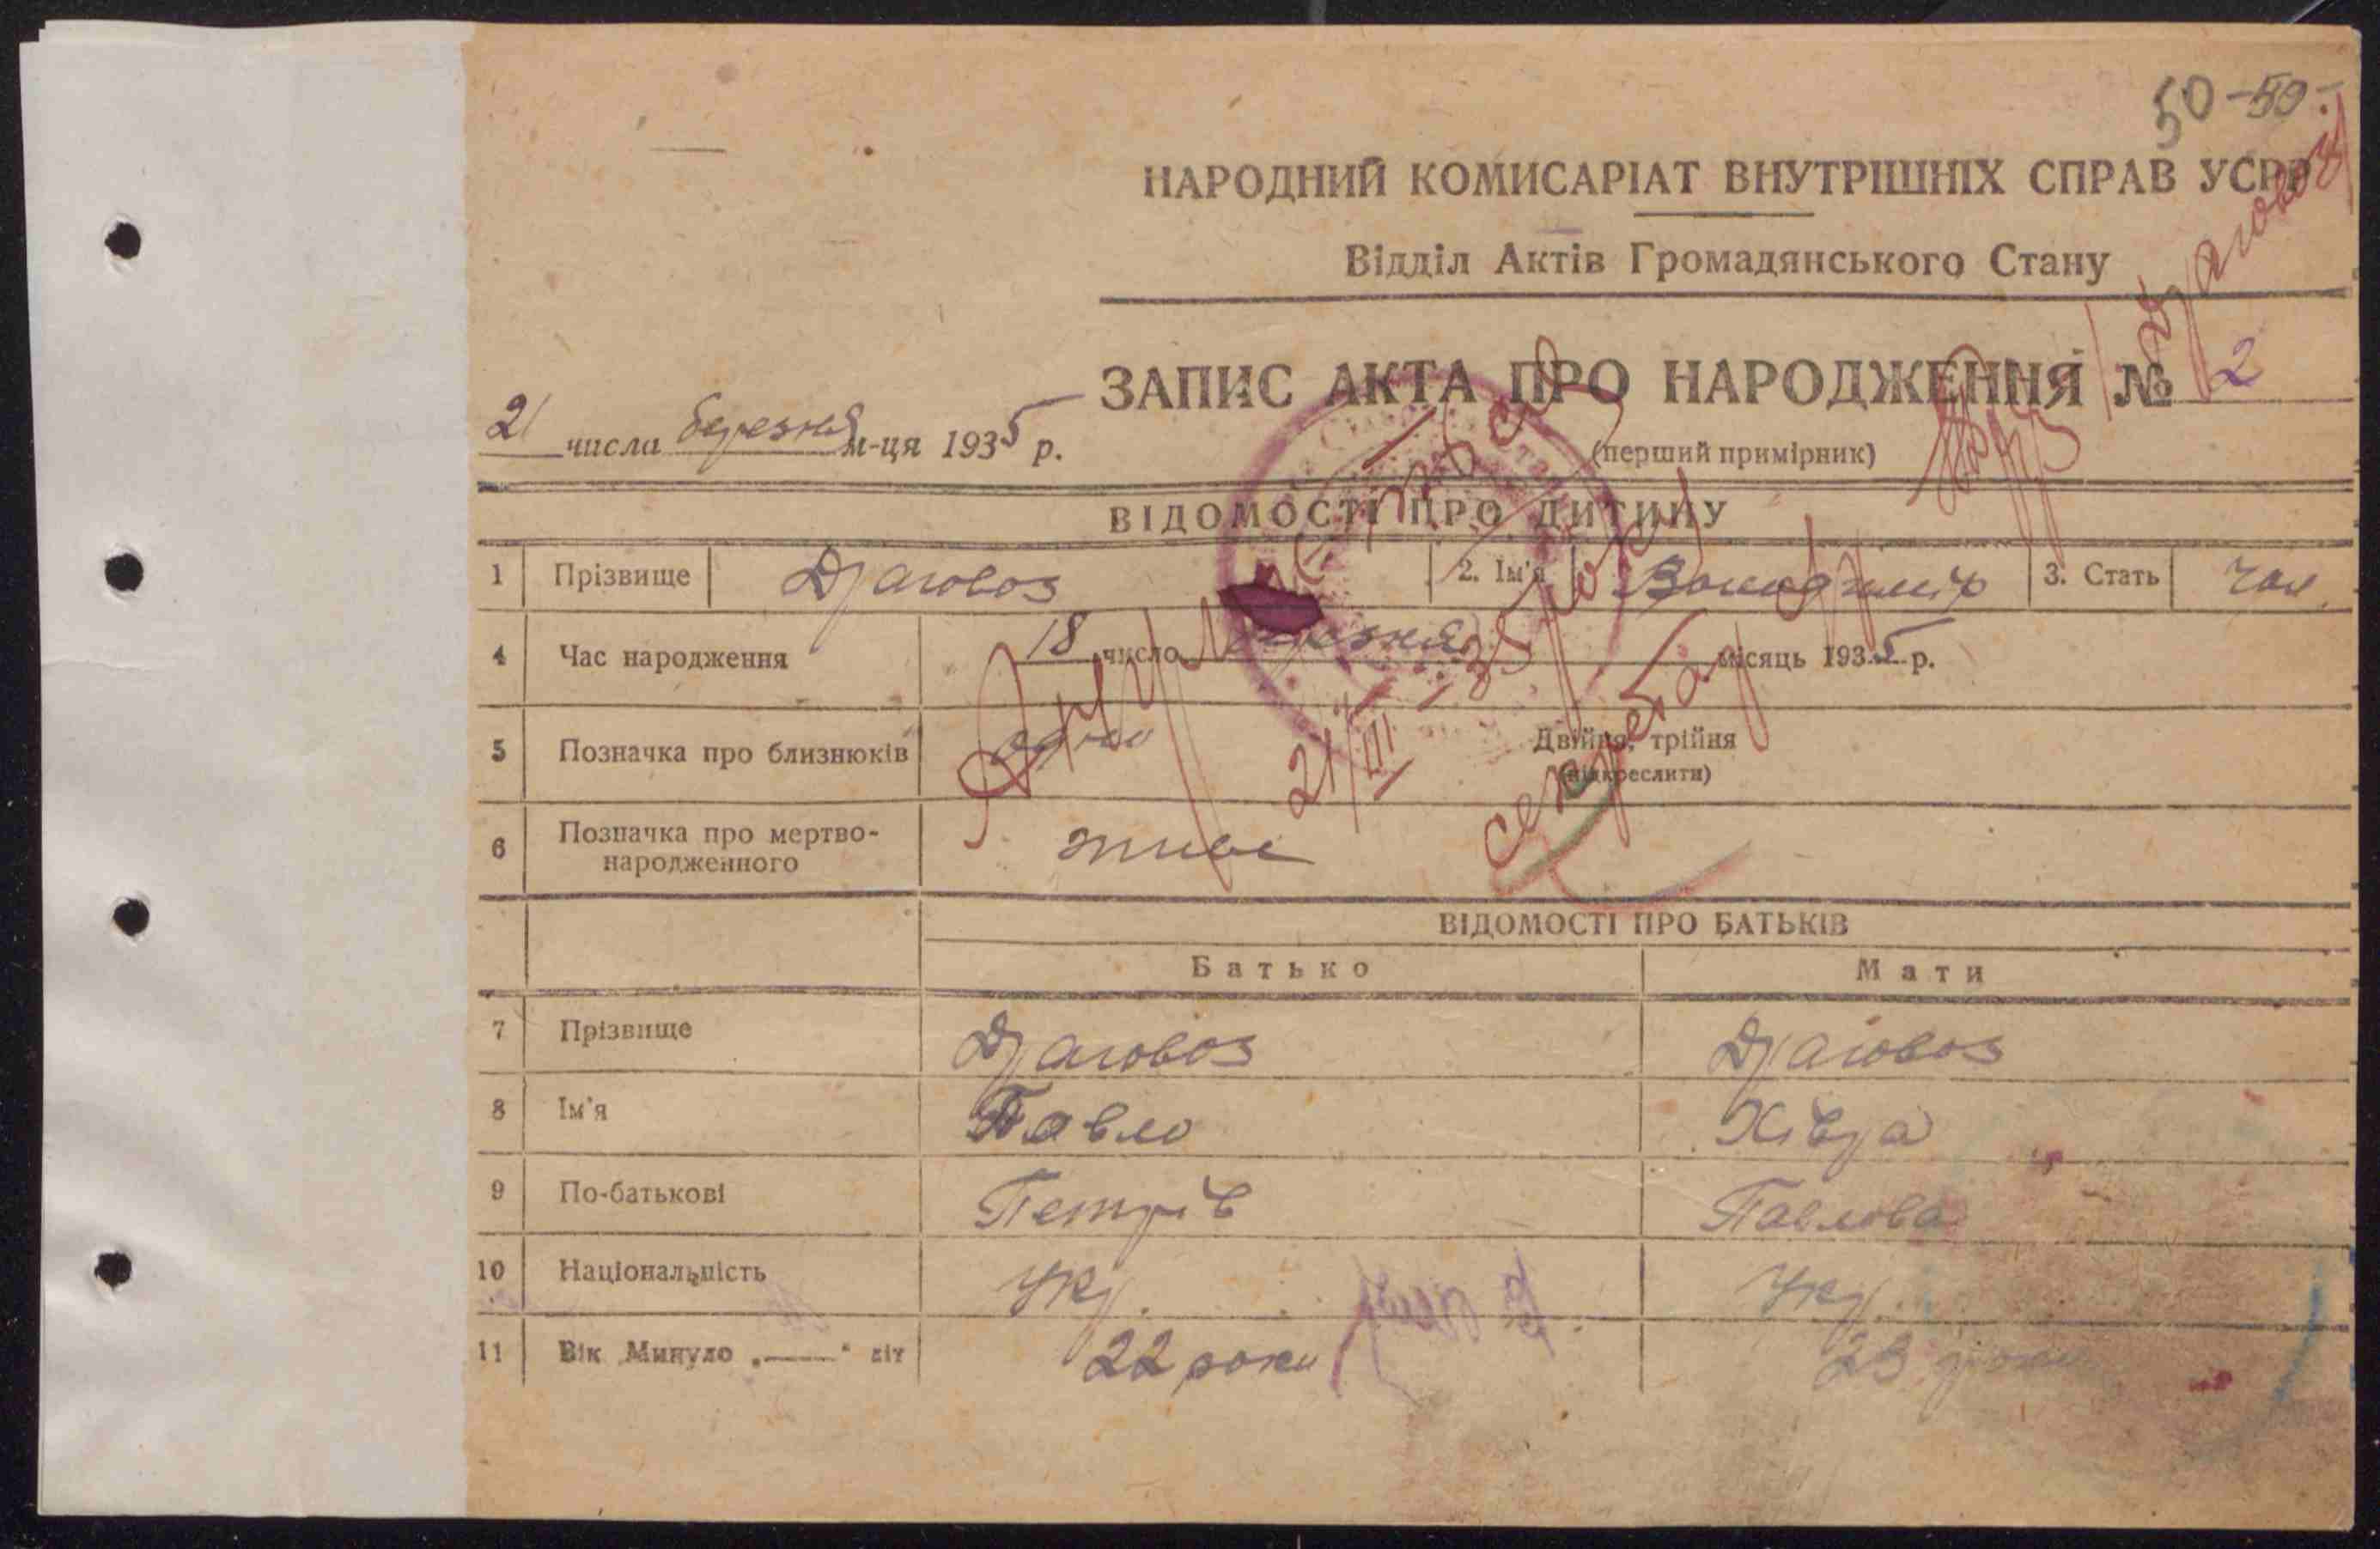 50-50-
НАРОДНИЙ КОМИСАРІАТ ВНУТРІШНІХ СПРАВ УСРР
Відділ Актів Громадянського Стану
ЗАПИС АКТА ПРО НАРОДЖЕННЯ № 2
21 числа березня м-ця 1935 р.
(перший примірник)
ВІДОМОСТІ ПРО ДИТИНУ
1 Прізвище Драговоз 2. Ім'я Володимір 3. Стать чол.
4 Час народження 18 число березня місяць 1935 р.
5 Позначка про близнюків одно Двійня, трійня
(підкреслити)
21/III-35
6 Позначка про мертво-
народженного живе
ВІДОМОСТІ ПРО БАТЬКІВ
Батько Мати
7 Прізвище Драговоз Драговоз
8 Ім'я Павло Хівря
9 По-батькові Петрів Павлова
10 Національність Укр. Укр.
11 Вік Минуло „—" літ 22 роки 23 роки